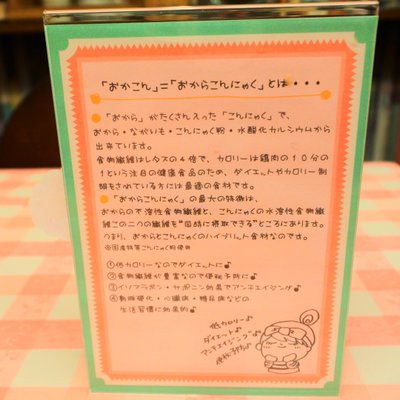 「おかこん」=「おからこんにゃく」とは・・・
●「おから」がたくさん入った「こんにゃく」で、
おから・ながいも・こんにゃく粉・水酸化カルシウムから
出来ています。
食物繊維はレタスの4倍で、カロリーは鶏肉の10分の
1という注目の健康食品のため、ダイエットやカロリー制
限をされている方には最適の食材です。
●「おからこんにゃく」の最大の特徴は、
おからの不溶性食物繊維と、こんにゃくの水溶性食物繊維
この二つの繊維を"同時に摂取できる"ところにあります。
つまり、おからとこんにゃくのハイブリット食材なのです。
※国産特等こんにゃく粉使用
①低カロリーなのでダイエットに♪
②食物繊維が豊富なので便秘予防に♪
③イソフラボン・サポニン効果でアンチエイジング♪
④動脈硬化・心臓病・糖尿病などの
生活習慣に効果的♪
低カロリー♪
ダイエット♪
アンチエイジング♪
便秘予防♪